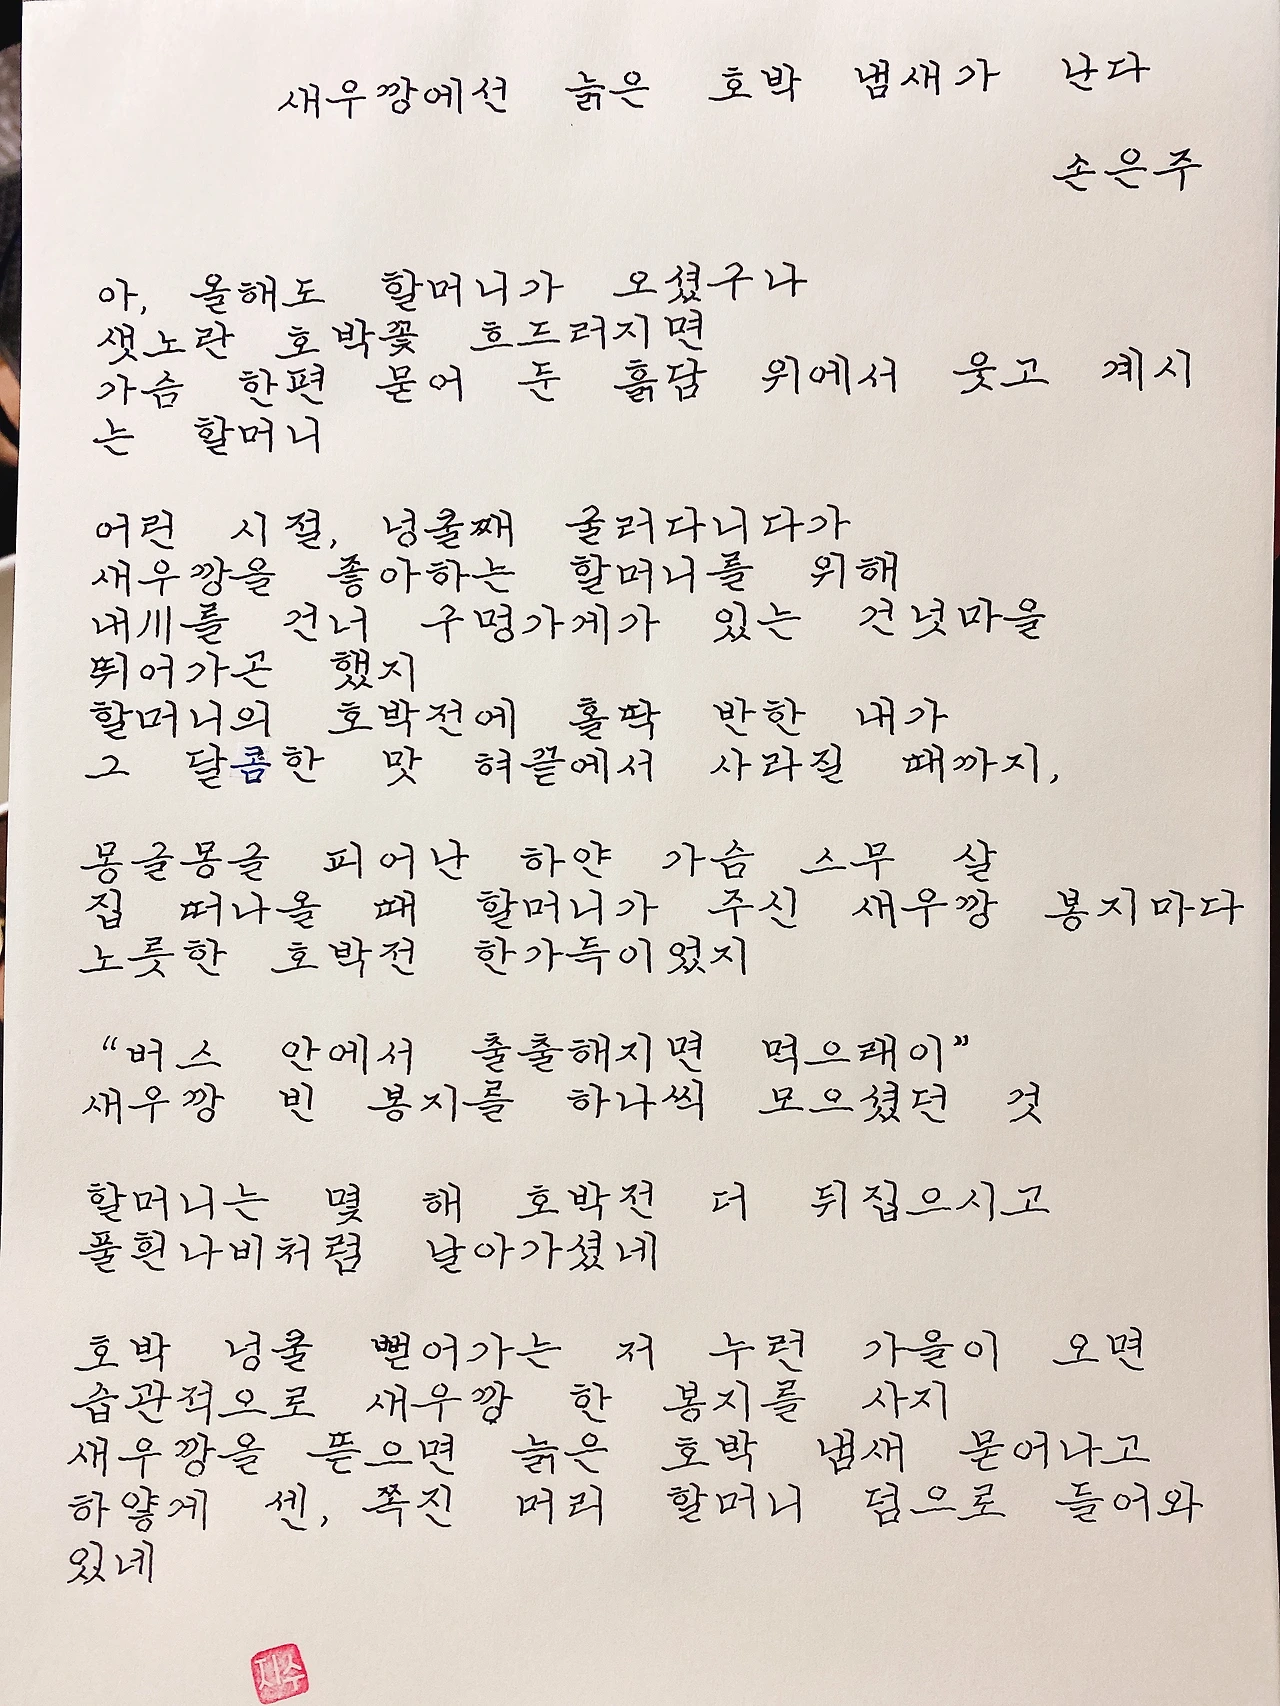 새우깡에선 늙은 호박 냄새가 난다
손은주
아, 올해도 할머니가 오셨구나
샛노란 호박꽃 흐드러지면
가슴 한편 묻어 둔 흙담 위에서 웃고 계시
는 할머니
어린 시절, 넝쿨째 굴러다니다가
새우깡을 좋아하는 할머니를 위해
내川를 건너 구멍가게가 있는 건넛마을
뛰어가곤 했지
할머니의 호박전에 홀딱 반한 내가
그 달콤한 맛 혀끝에서 사라질 때까지,
몽글몽글 피어난 하얀 가슴 스무 살
집 떠나올 때 할머니가 주신 새우깡 봉지마다
노릇한 호박전 한가득이었지
“버스 안에서 출출해지면 먹으래이”
새우깡 빈 봉지를 하나씩 모으셨던 것
할머니는 몇 해 호박전 더 뒤집으시고
풀흰나비처럼 날아가셨네
호박 넝쿨 뻗어가는 저 누런 가을이 오면
습관적으로 새우깡 한 봉지를 사지
새우깡을 뜯으면 늙은 호박 냄새 묻어나고
하얗게 센, 쪽진 머리 할머니 덤으로 들어와
있네